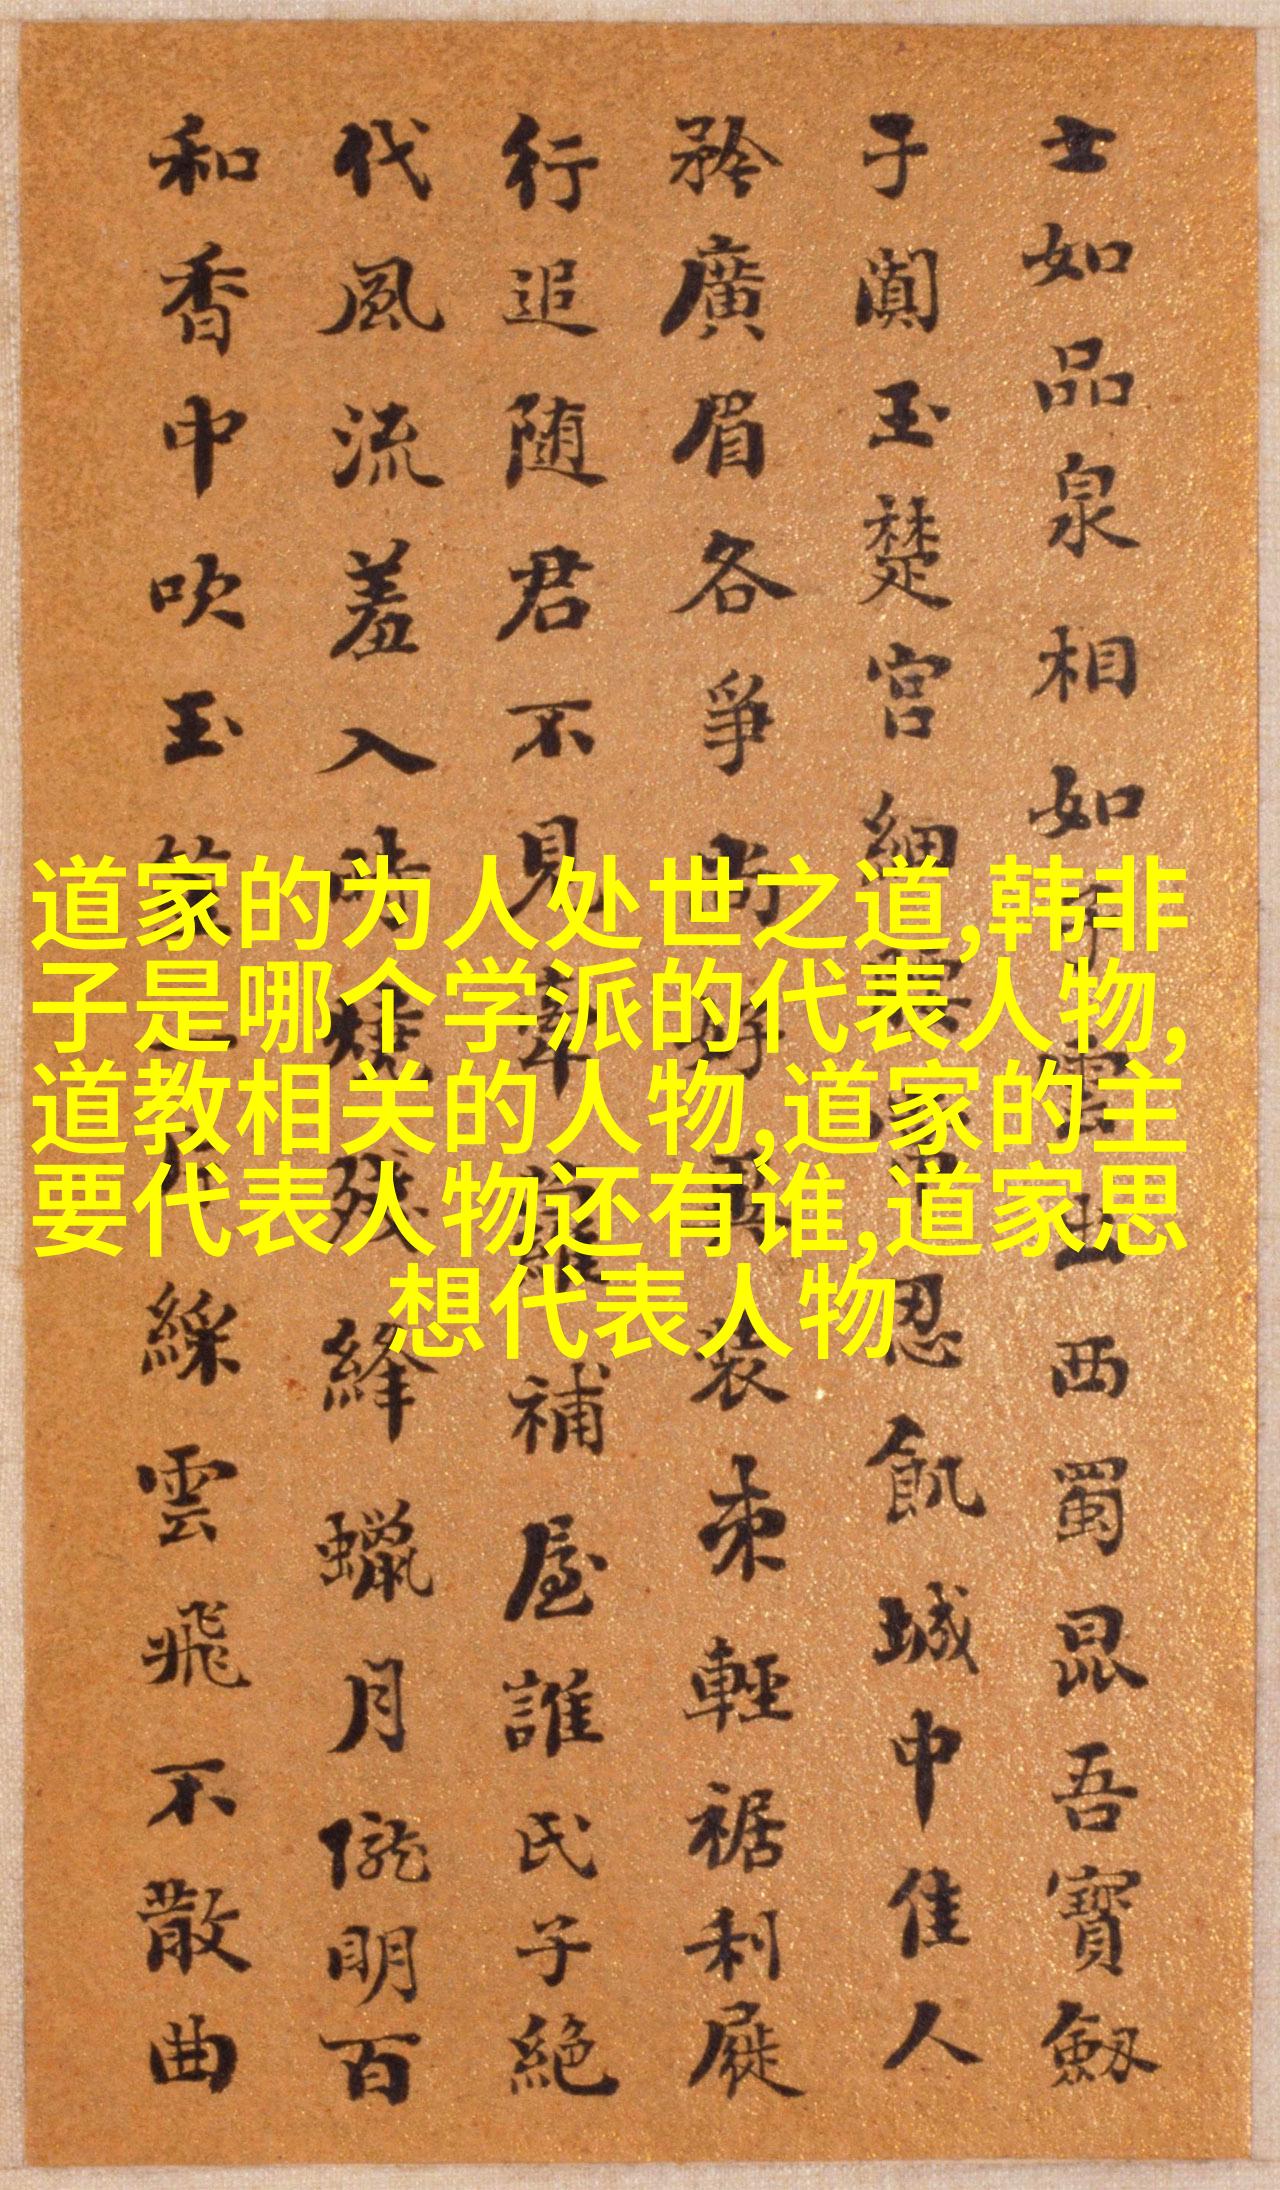 士如品泉相如
西蜀昆吾寶劒
子闐玉楚宮細
忍飢城中佳人
矜廣眉各爭尚
裝束輕裾利屣
行追随君不見
補屋誰氏子絕
代風流羞入時
残絳蠟月隴明百
和香中吹玉
綵雲飛不散曲
道家的为人处世之道,韩非
子是哪个学派的代表人物,
道教相关的人物,道家的主
要代表人物还有谁,道家思
想代表人物